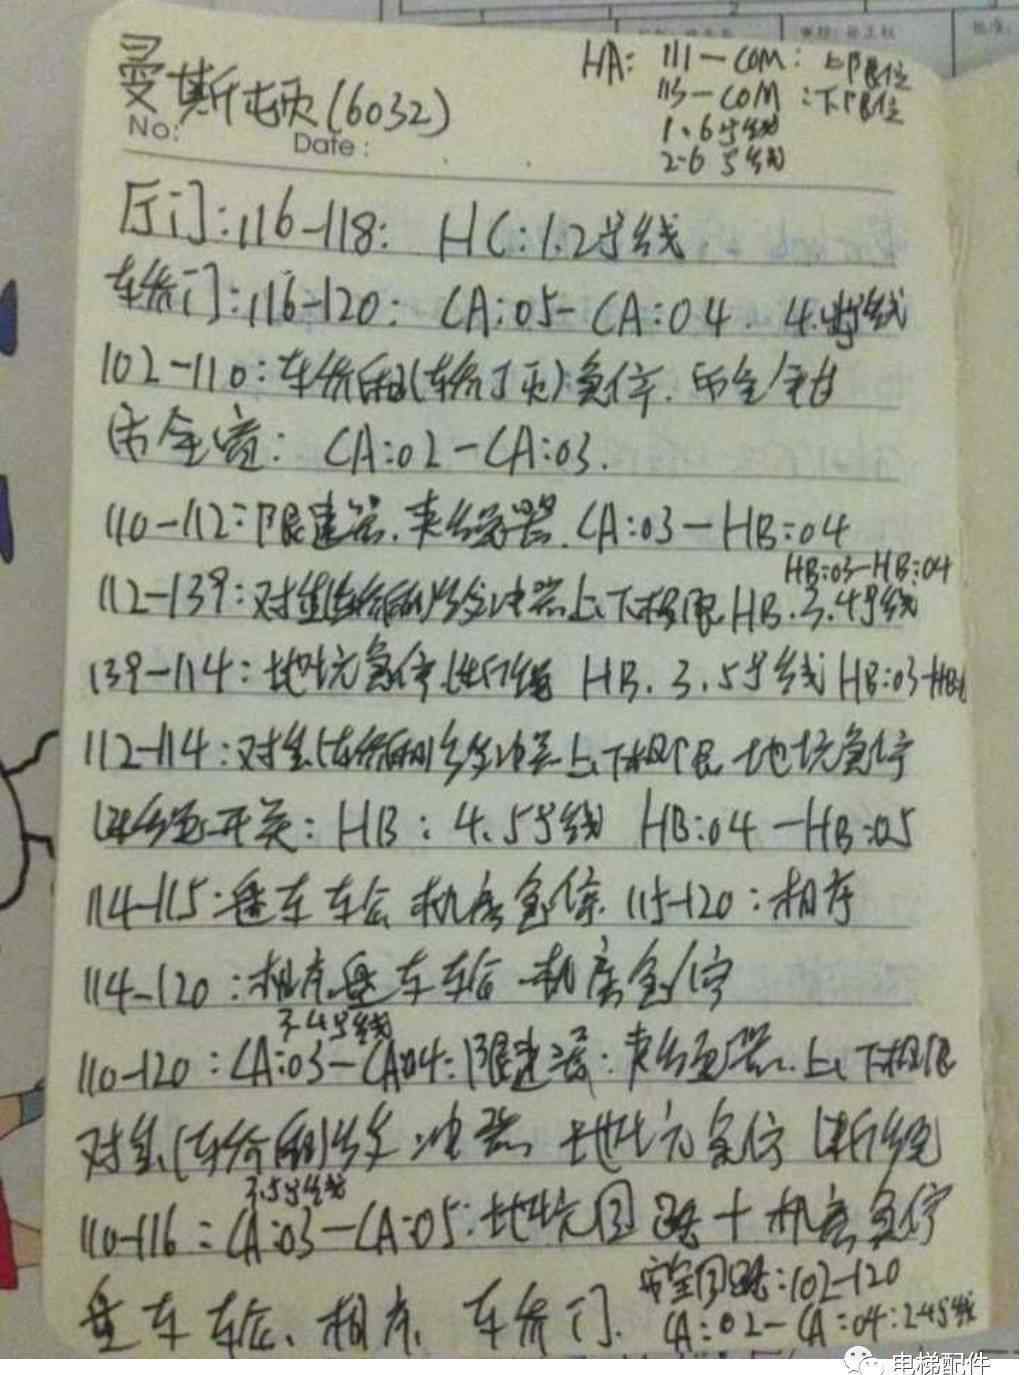 曼斯顿(6032)
HA: 111-COM: 上限位
113-COM: 下限位
1.6号线
2.6号线
No:
Date:
厅门:116-118: HC:1.2号线
轿门:116-120: CA:05-CA:04. 4.5号线
102-110:轿厢(轿顶)急停.安全钳
安全窗: CA:02-CA:03.
110-112:限速器.夹绳器.CA:03-HB:04
HB:03-HB:04
112-139:对重(轿厢)缓冲器上下极限HB.3.4号线
139-114:地坑急停.断绳 HB.3.5号线 HB:03-HB:
112-114:对重(轿厢)缓冲器上下极限 地坑急停
断绳开关:HB:4.5号线 HB:04-HB:05
114-115:盘车轮 机房急停.115-120:相序
114-120:相序.盘车轮 机房急停
3.4号线
110-120:CA:03-CA:04:限速器:夹绳器.上下极限
对重(轿厢)缓冲器 地坑急停 断绳
3.5号线
110-116=CA:03-CA:05:地坑回路+机房急停
盘车轮、相序、轿门.
安全回路:102-120
CA:02-CA:04:2.4号线
电梯配件